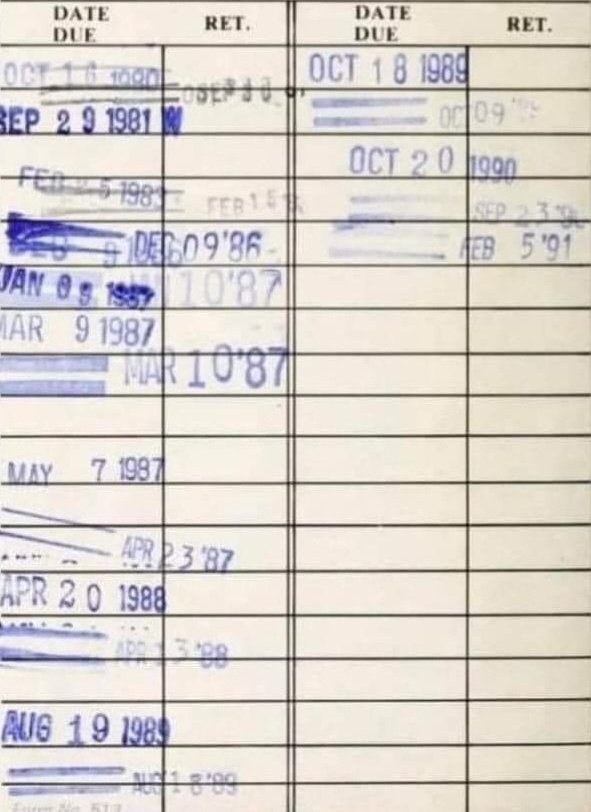 DATE DUE
RET.
DATE DUE
RET.
OCT 16 1980
SEP 29 1981
FEB 1983
FEB 15
DEC 09'86
JAN 09 1987
10'87
MAR 9 1987
MAR 10'87
MAY 7 1987
APR 23 '87
APR 20 1988
APR 13 '88
AUG 19 1989
AUG 18 '89
OCT 18 1989
OC 09
OCT 20 1990
SEP 23
FEB 5 '91